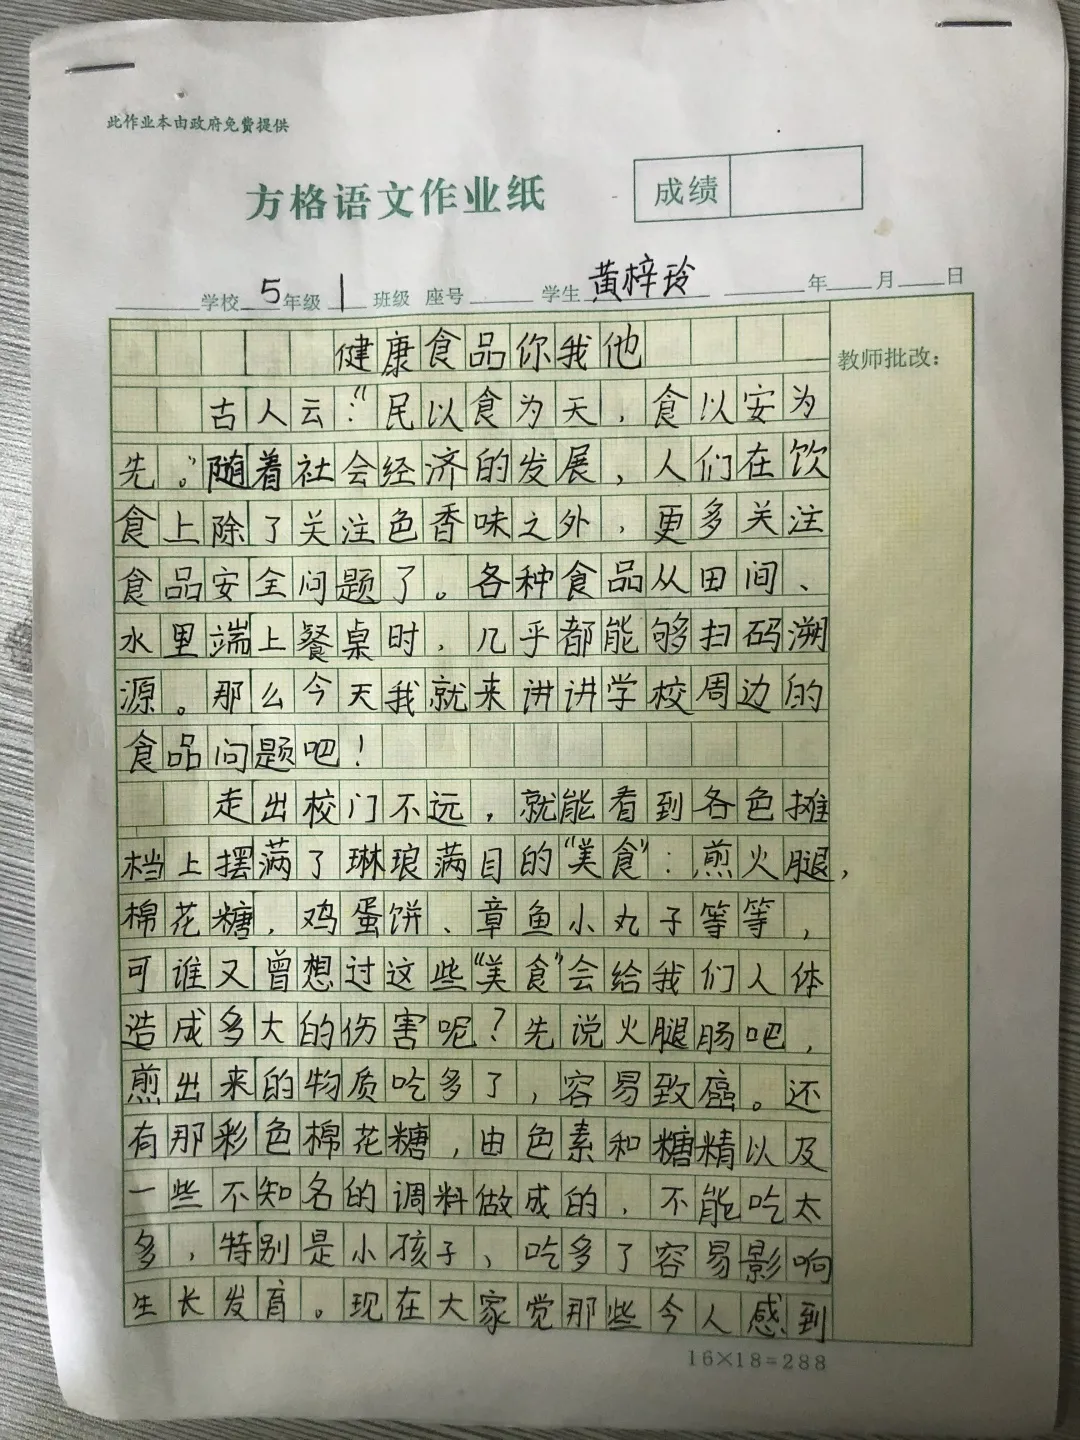 此作业本由政府免费提供
方格语文作业纸
成绩
学校 5年级 1 班级 座号 学生 黄梓玲 年 月 日
教师批改:
健康食品你我他
古人云:“民以食为天,食以安为
先。”随着社会经济的发展,人们在饮
食上除了关注色香味之外,更多关注
食品安全问题了。各种食品从田间、
水里端上餐桌时,几乎都能够扫码溯
源。那么今天我就来讲讲学校周边的
食品问题吧!
走出校门不远,就能看到各色摊
档上摆满了琳琅满目的“美食”:煎火腿,
棉花糖,鸡蛋饼、章鱼小丸子等等,
可谁又曾想过这些“美食”会给我们人体
造成多大的伤害呢?先说火腿肠吧,
煎出来的物质吃多了,容易致癌。还
有那彩色棉花糖,由色素和糖精以及
一些不知名的调料做成的,不能吃太
多,特别是小孩子、吃多了容易影响
生长发育。现在大家觉那些令人感到
16×18=288